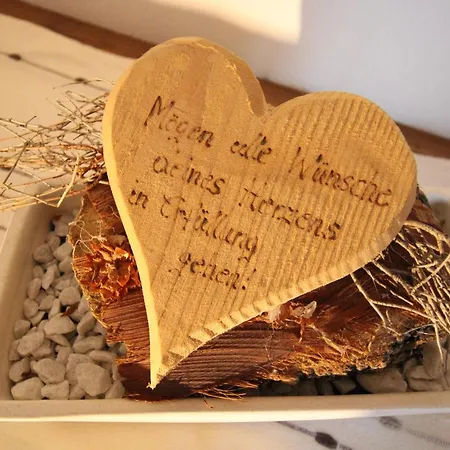 Mögen alle Wünsche
deines Herzens
in Erfüllung
gehen!